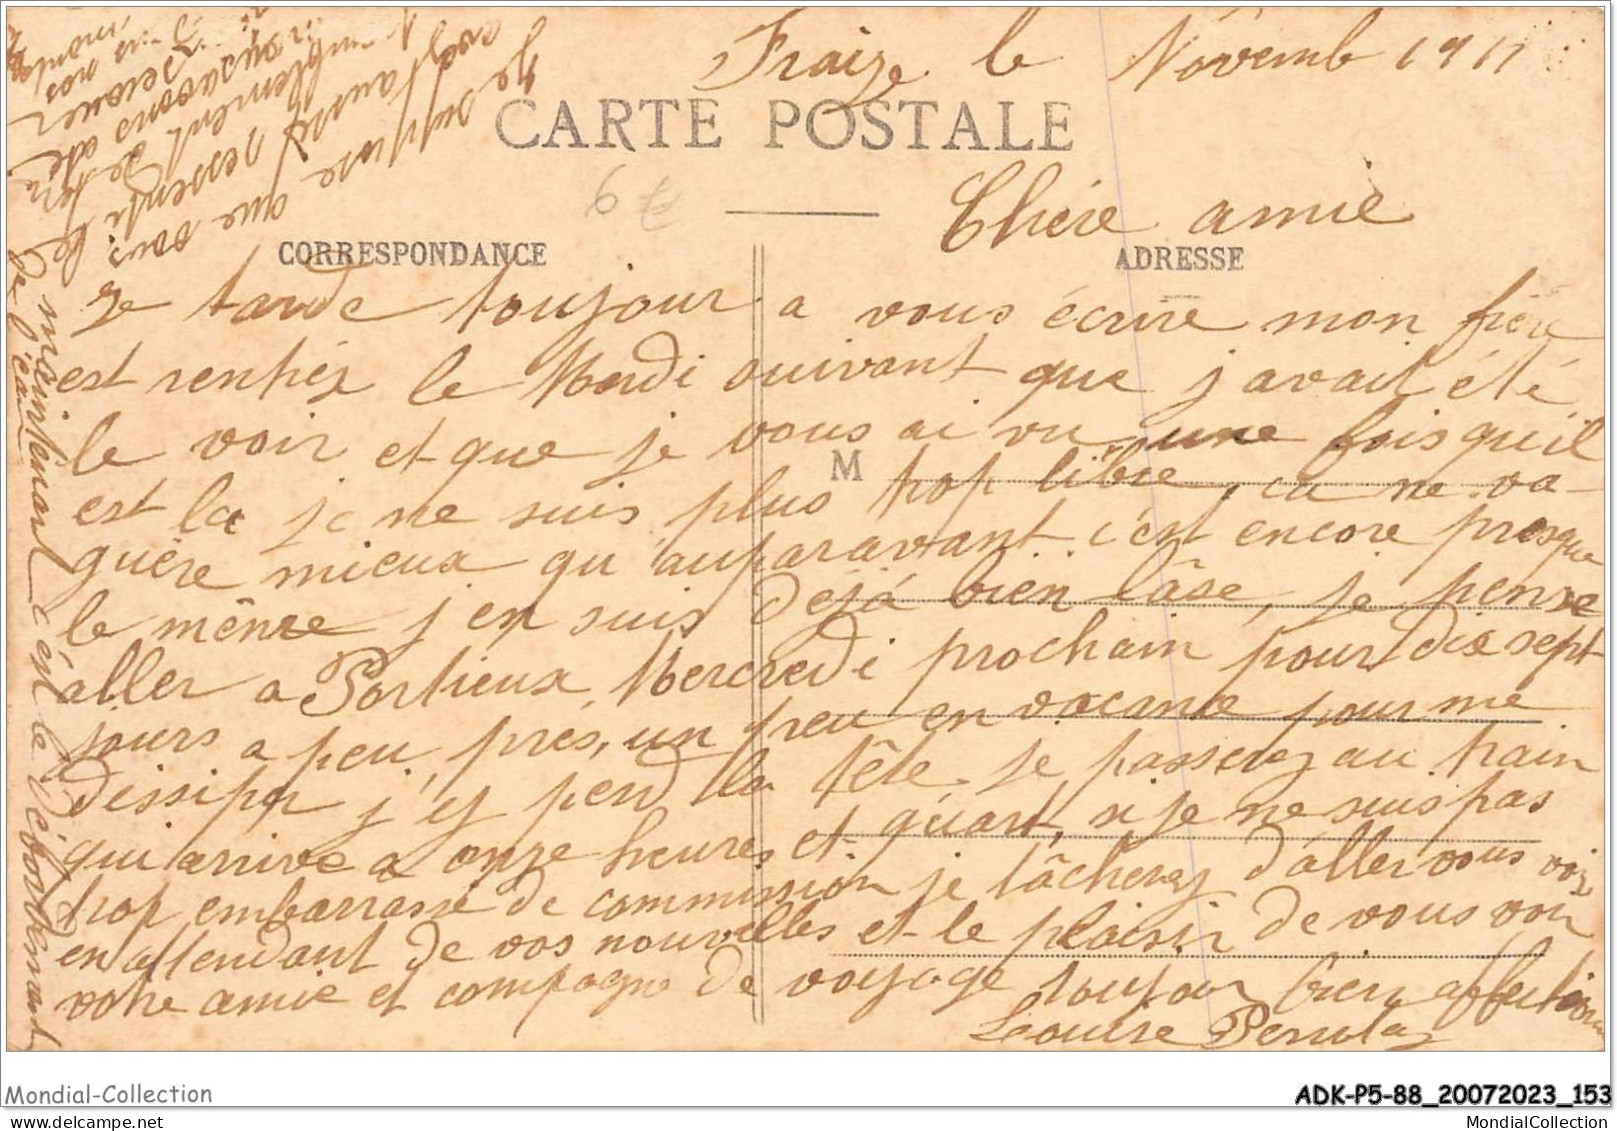 Fraize le Novemb 1911
CARTE POSTALE
67
Chére amie
CORRESPONDANCE
ADRESSE
Je tarde toujour a vous écrire mon frére
est rentrés le Mardi suivant que j'avait été
le voir et que je vous ai vu une fois qu'il
M
est la je ne suis plus trop libre, ca ne va
guère mieux qu'auparavant c'est encore presque
le même j'en suis déjá bien lâse, je pense
aller a Portieux Mercredi prochain pour dix sept
jours a peu prés, un peu en vacance pour me
dissiper j'y perd la tête. Je passerez au train
qui arrive a onze heures et quart, si je ne suis pas
trop embarrassé de commission je tâcherez d'aller vous voir
en attendant de vos nouvelles et le plaisir de vous voir
votre amie et compagne de voyage toujour bien affectionné
Louise
Je suppose
que vous
avez
ressenti le
tremblement de ter
nous avons dé
nos
maintenant c'est le débordement
de l'eau
Mondial-Collection
ADK-P5-88_20072023_153
MondialCollection